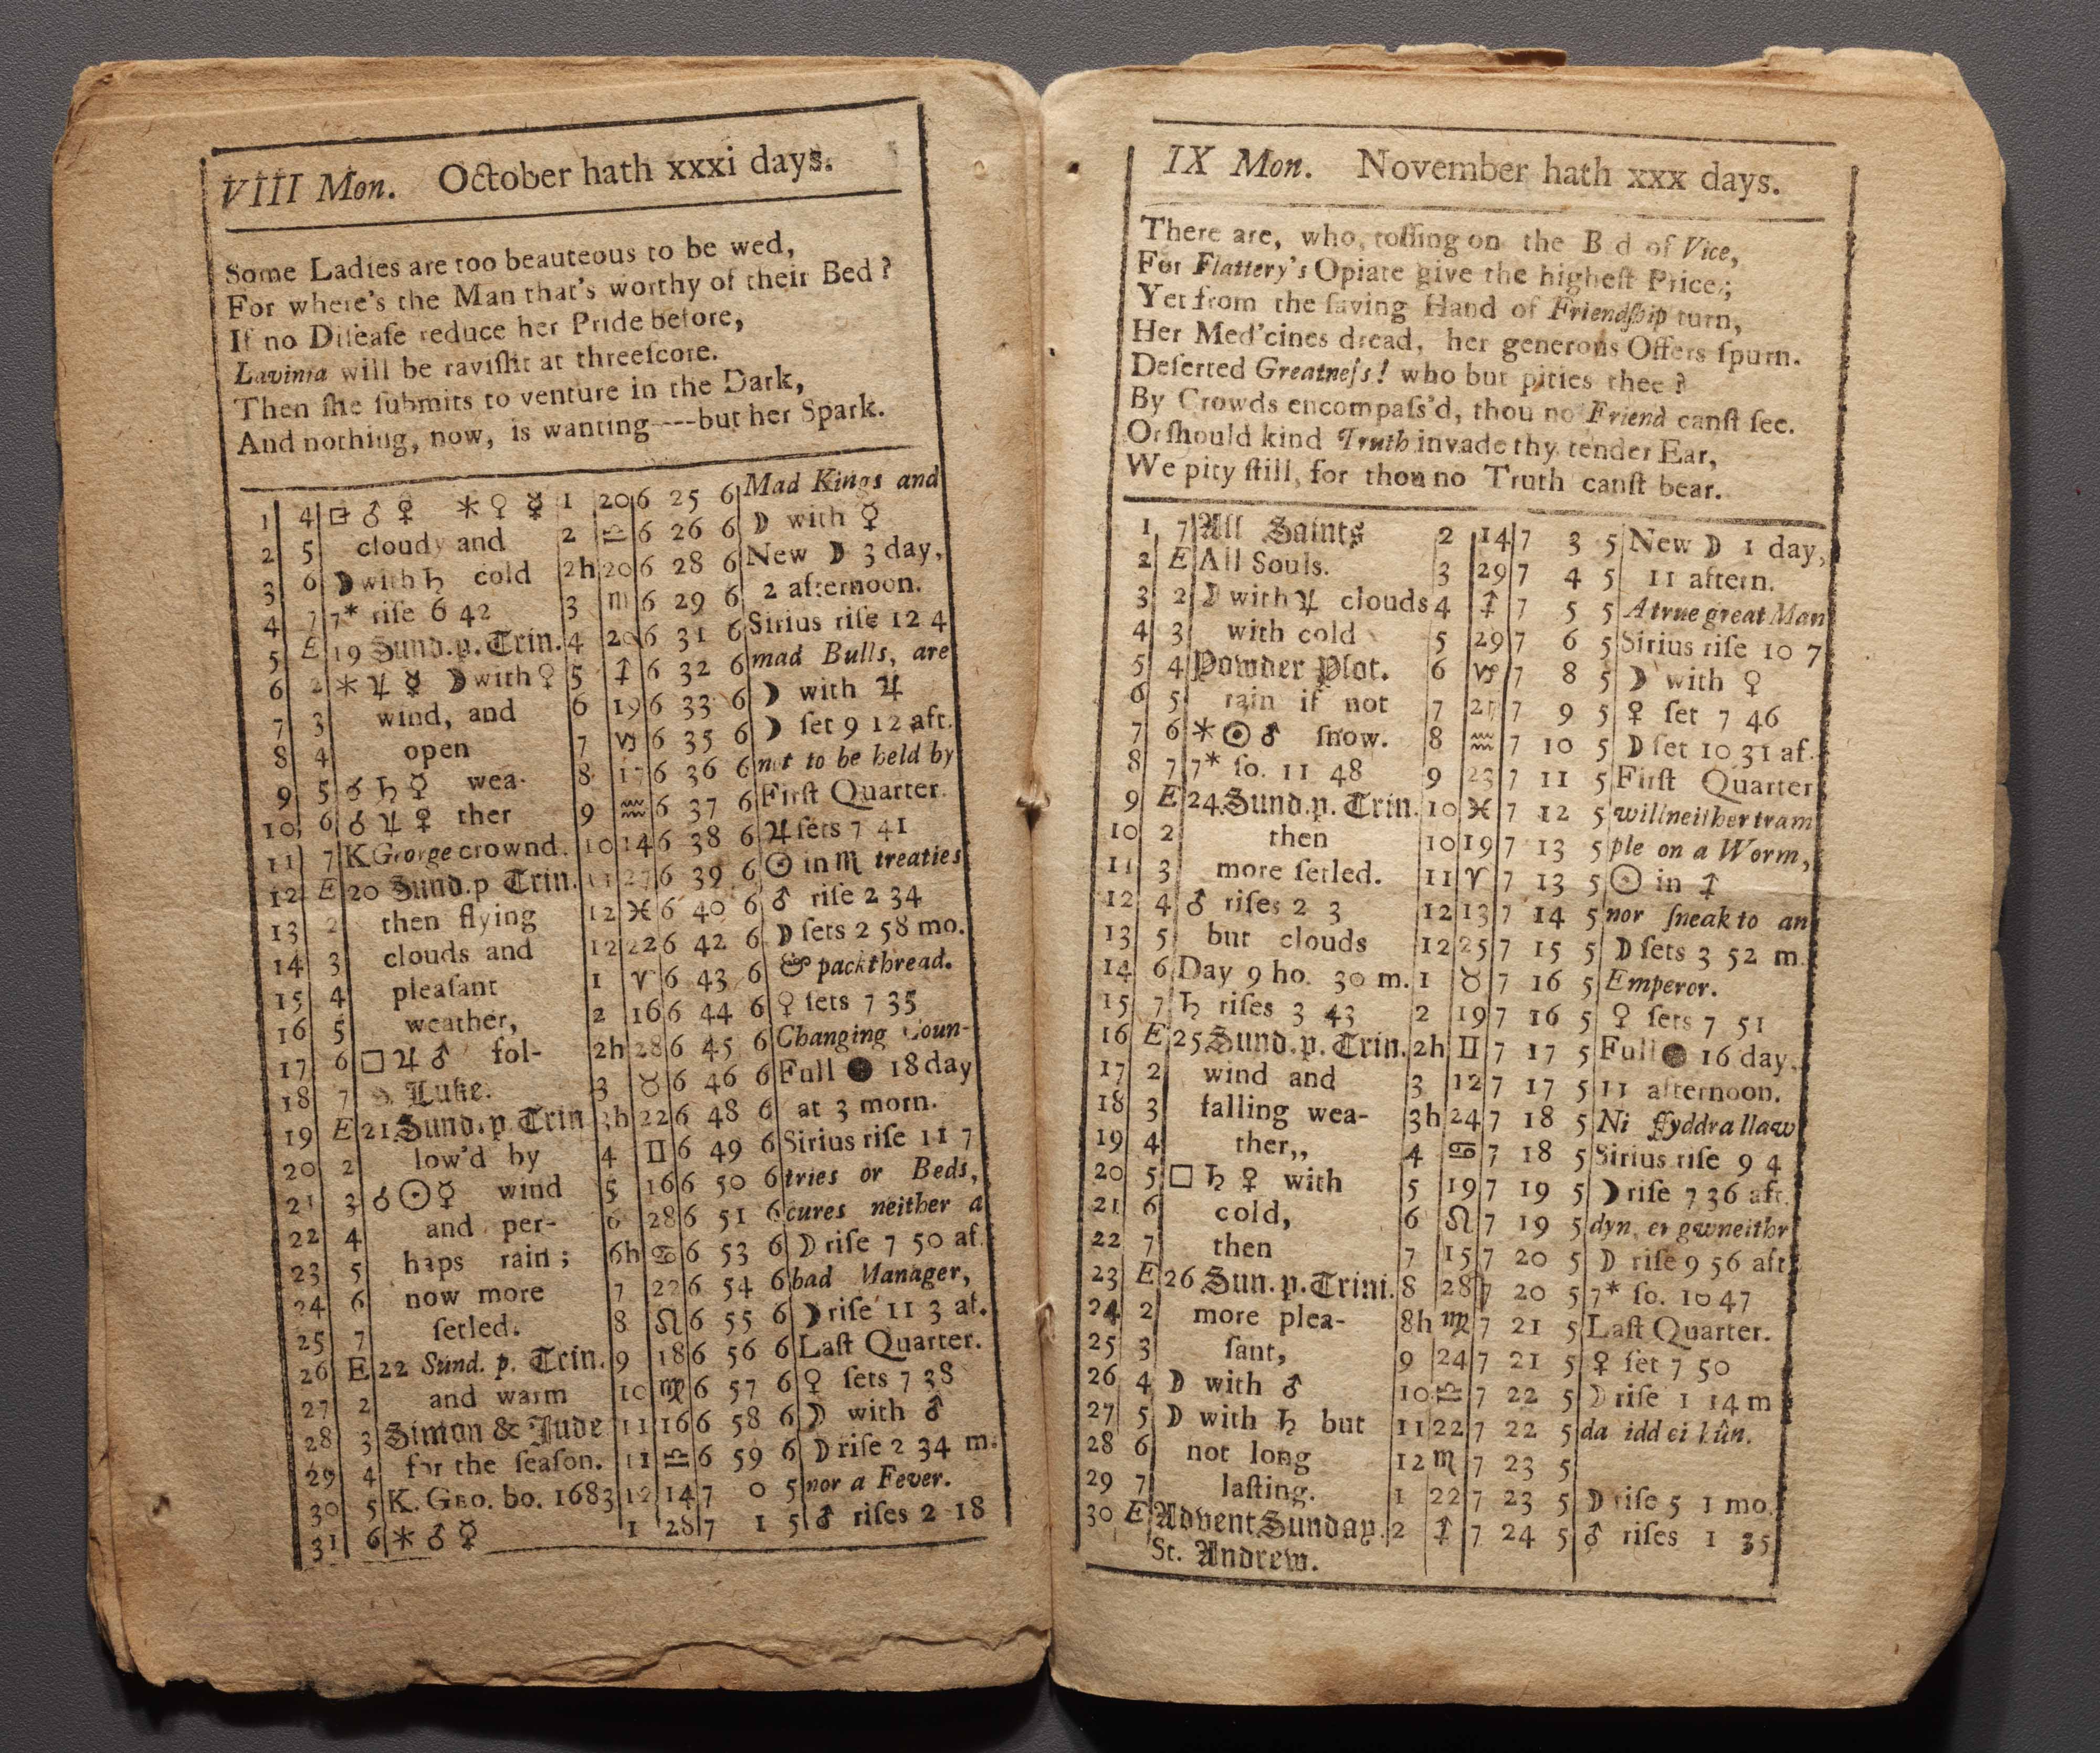 VIII Mon. October hath xxxi days.
Some Ladies are too beauteous to be wed,
For where's the Man that's worthy of their Bed ?
If no Diſeaſe reduce her Pride before,
Lavinia will be raviſht at threeſcore.
Then ſhe ſubmits to venture in the Dark,
And nothing, now, is wanting----but her Spark.
1 4 □ ♂ ♀ ⚹ ♀ ☿ 1 20 6 25 6 Mad Kings and
2 5 cloudy and 2 ♎ 6 26 6 ☽ with ☿
3 6 ☽ with ♄ cold 2h 20 6 28 6 New ☽ 3 day,
4 7 7* riſe 6 42 3 ♏ 6 29 6 2 afternoon.
5 E 19 Sund. p. Trin. 4 20 6 31 6 Sirius riſe 12 4
6 2 ⚹ ♃ ☿ ☽ with ♀ 5 ♐ 6 32 6 mad Bulls, are
7 3 wind, and 6 19 6 33 6 ☽ with ♃
8 4 open 7 ♑ 6 35 6 ☽ ſet 9 12 aft.
9 5 ☌ ♄ ☿ wea- 8 17 6 36 6 not to be held by
10 6 ☌ ♃ ♀ ther 9 ♒ 6 37 6 Firſt Quarter.
11 7 K George crownd. 10 14 6 38 6 ♃ ſets 7 41
12 E 20 Sund. p Trin. 11 27 6 39 6 ☉ in ♏ treaties
13 2 then flying 12 ♓ 6 40 6 ♂ riſe 2 34
14 3 clouds and 12 22 6 42 6 ☽ ſets 2 58 mo.
15 4 pleaſant 1 ♈ 6 43 6 & packthread.
16 5 weather, 2 16 6 44 6 ♀ ſets 7 35
17 6 □ ♃ ♂ fol- 2h 28 6 45 6 Changing Coun-
18 7 Luke. 3 ♉ 6 46 6 Full ● 18 day
19 E 21 Sund. p. Trin 3h 22 6 48 6 at 3 morn.
20 2 low'd by 4 ♊ 6 49 6 Sirius riſe 11 7
21 3 ☌ ☉ ☿ wind 5 16 6 50 6 tries or Beds,
22 4 and per- 6 28 6 51 6 cures neither a
23 5 haps rain ; 6h ♋ 6 53 6 ☽ riſe 7 50 af.
24 6 now more 7 22 6 54 6 bad Manager,
25 7 ſetled. 8 ♌ 6 55 6 ☽ riſe 11 3 af.
26 E 22 Sund. p. Trin. 9 18 6 56 6 Laſt Quarter.
27 2 and warm 10 ♍ 6 57 6 ♀ ſets 7 38
28 3 Simon & Jude 11 16 6 58 6 ☽ with ♂
29 4 for the ſeaſon. 11 ♎ 6 59 6 ☽ riſe 2 34 m.
30 5 K. GEO. bo. 1683 12 14 7 0 5 nor a Fever.
31 6 ⚹ ♂ ☿ 1 28 7 1 5 ♂ riſes 2 18
IX Mon. November hath xxx days.
There are, who, toſſing on the B d of Vice,
For Flattery's Opiate give the higheſt Price;
Yet from the ſaving Hand of Friendſhip turn,
Her Med'cines dread, her generous Offers ſpurn.
Deſerted Greatneſs! who but pities thee ?
By Crowds encompaſs'd, thou no Friend canſt ſee.
Or ſhould kind Truth invade thy tender Ear,
We pity ſtill, for thou no Truth canſt bear.
1 7 All Saints 2 14 7 3 5 New ☽ 1 day,
2 E All Souls. 3 29 7 4 5 11 aftern.
3 2 ☽ with ♃ clouds 4 ♐ 7 5 5 A true great Man
4 3 with cold 5 29 7 6 5 Sirius riſe 10 7
5 4 Powder Plot. 6 ♑ 7 8 5 ☽ with ♀
6 5 rain if not 7 27 7 9 5 ♀ ſet 7 46
7 6 ⚹ ☉ ♂ ſnow. 8 ♒ 7 10 5 ☽ ſet 10 31 af.
8 7 7* ſo. 11 48 9 23 7 11 5 Firſt Quarter
9 E 24 Sund. p. Trin. 10 ♓ 7 12 5 will neither tram
10 2 then 10 19 7 13 5 ple on a Worm,
11 3 more ſetled. 11 ♈ 7 13 5 ☉ in ♐
12 4 ♂ riſes 2 3 12 13 7 14 5 nor ſneak to an
13 5 but clouds 12 25 7 15 5 ☽ ſets 3 52 m.
14 6 Day 9 ho. 30 m. 1 ♉ 7 16 5 Emperor.
15 7 ♄ riſes 3 43 2 19 7 16 5 ♀ ſets 7 51
16 E 25 Sund. p. Trin. 2h ♊ 7 17 5 Full ● 16 day,
17 2 wind and 3 12 7 17 5 11 afternoon.
18 3 falling wea- 3h 24 7 18 5 Ni ffyddra llaw
19 4 ther,, 4 ♋ 7 18 5 Sirius riſe 9 4
20 5 □ ♄ ♀ with 5 19 7 19 5 ☽ riſe 7 36 aft.
21 6 cold, 6 ♌ 7 19 5 dyn, er gwneithr
22 7 then 7 15 7 20 5 ☽ riſe 9 56 aft
23 E 26 Sun. p. Trini. 8 28 7 20 5 7* ſo. 10 47
24 2 more plea- 8h ♍ 7 21 5 Laſt Quarter.
25 3 ſant, 9 24 7 21 5 ♀ ſet 7 50
26 4 ☽ with ♂ 10 ♎ 7 22 5 ☽ riſe 1 14 m
27 5 ☽ with ♄ but 11 22 7 22 5 da idd ei hûn.
28 6 not long 12 ♏ 7 23 5
29 7 laſting. 1 22 7 23 5 ☽ riſe 5 1 mo.
30 E Advent Sunday. 2 ♐ 7 24 5 ♂ riſes 1 35
St. Andrew.